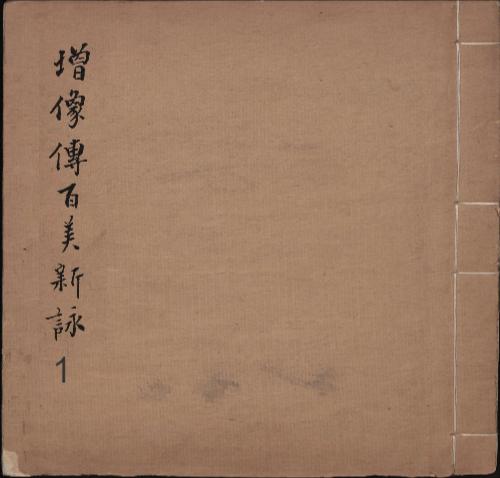 增像傳百美新詠
1